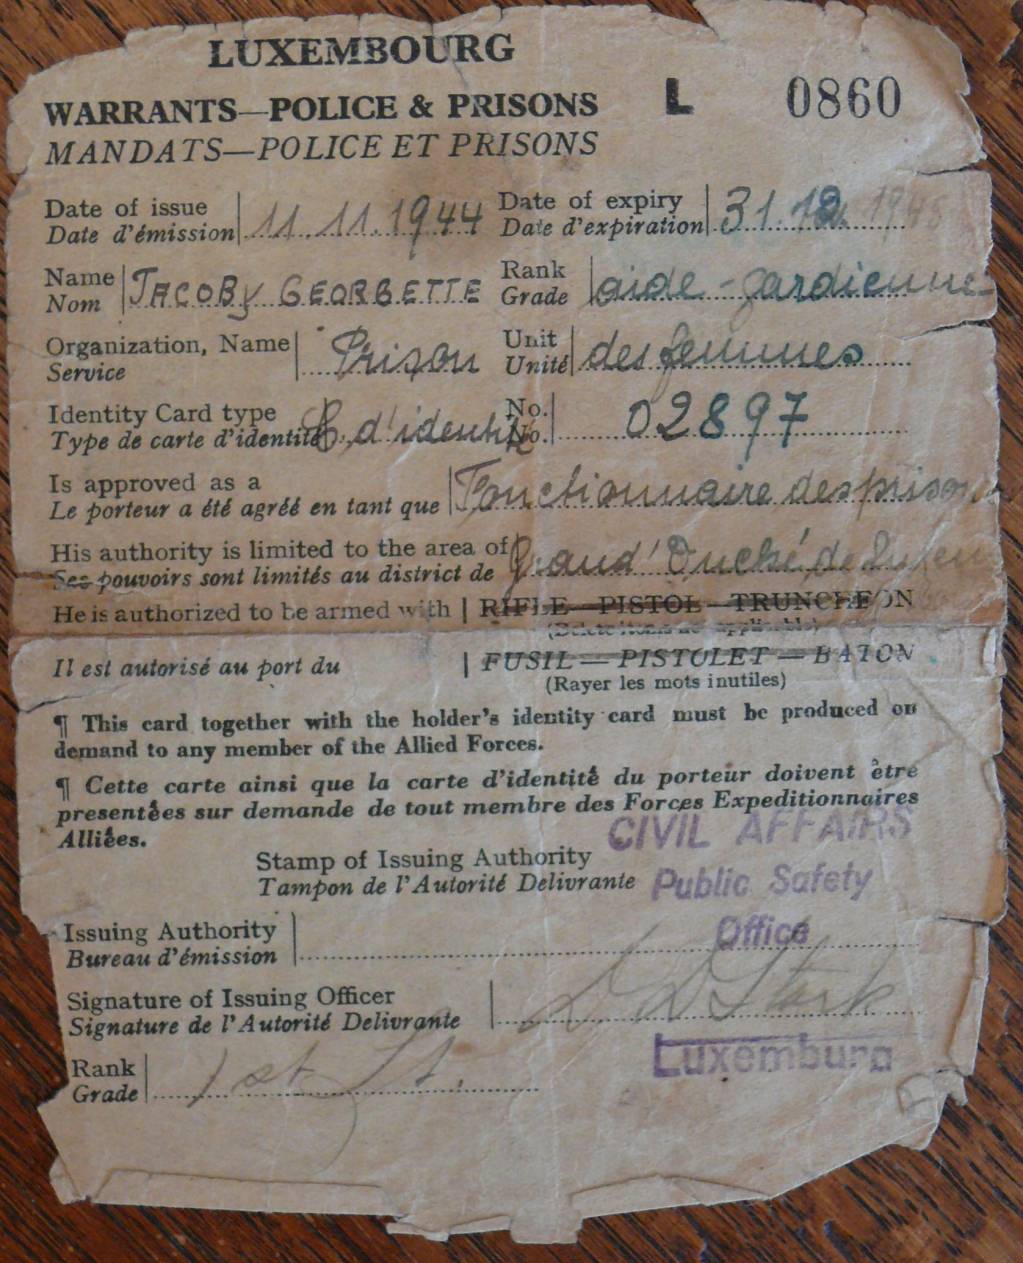 LUXEMBOURG
WARRANTS—POLICE & PRISONS L 0860
MANDATS—POLICE ET PRISONS
Date of issue 11.11.1944 Date of expiry 31.12.
Date d'émission Date d'expiration
Name JACOBY GEORGETTE Rank aide-gardienne
Nom Grade
Organization, Name Prison Unit des femmes
Service Unité
Identity Card type C. d'identité No. 02897
Type de carte d'identité No.
Is approved as a Fonctionnaire des prisons
Le porteur a été agréé en tant que
His authority is limited to the area of Grand' Duché de Luxem
Ses pouvoirs sont limités au district de
He is authorized to be armed with | RIFLE—PISTOL—TRUNCHEON
(Delete items not applicable)
Il est autorisé au port du | FUSIL—PISTOLET—BATON
(Rayer les mots inutiles)
¶ This card together with the holder's identity card must be produced on
demand to any member of the Allied Forces.
¶ Cette carte ainsi que la carte d'identité du porteur doivent être
presentées sur demande de tout membre des Forces Expeditionnaires
Alliées.
CIVIL AFFAIRS
Stamp of Issuing Authority
Tampon de l'Autorité Delivrante Public Safety
Issuing Authority Office
Bureau d'émission
Signature of Issuing Officer Stark
Signature de l'Autorité Delivrante
Luxemburg
Rank 1st Lt.
Grade